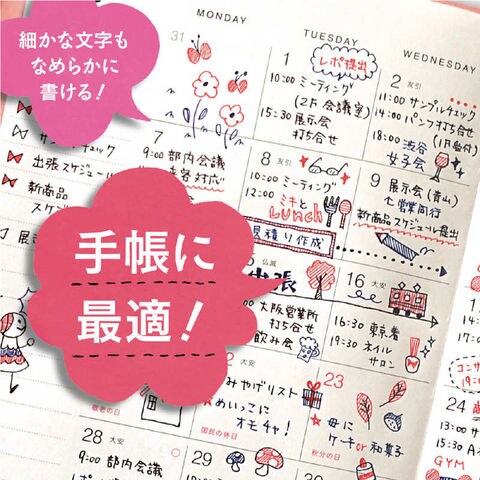 細かな文字も
なめらかに
書ける!
手帳に
最適!
MONDAY
TUESDAY
WEDNESDAY
31
1
レポ提出
10:00 ミーティング
(2F 会議室)
15:30 展示会
打ち合せ
2 友引
11:00 サンプルチェック
14:00 パンフ打ち合せ
(1F受付)
18:00 渋谷
女子会
出張スケジュール
新商品
7
9:00 部内会議
来客対応
8 友引
10:00 ミーティング
12:00 ミキと
Lunch
見積り作成
9
展示会(青山)
七営業同行
新商品スケジュール提出
仏滅
出張
大阪営業所
打ち合せ
飲み会
16 大安
16:30 東京着
19:30 ネイル
サロン
敬老の日
大安
みやげリスト
めいっこに
オモチャ!
国民の休日
23
母に
ケーキor和菓子
秋分の日
24
28 大安
9:00 部内会議
29
30
GYM